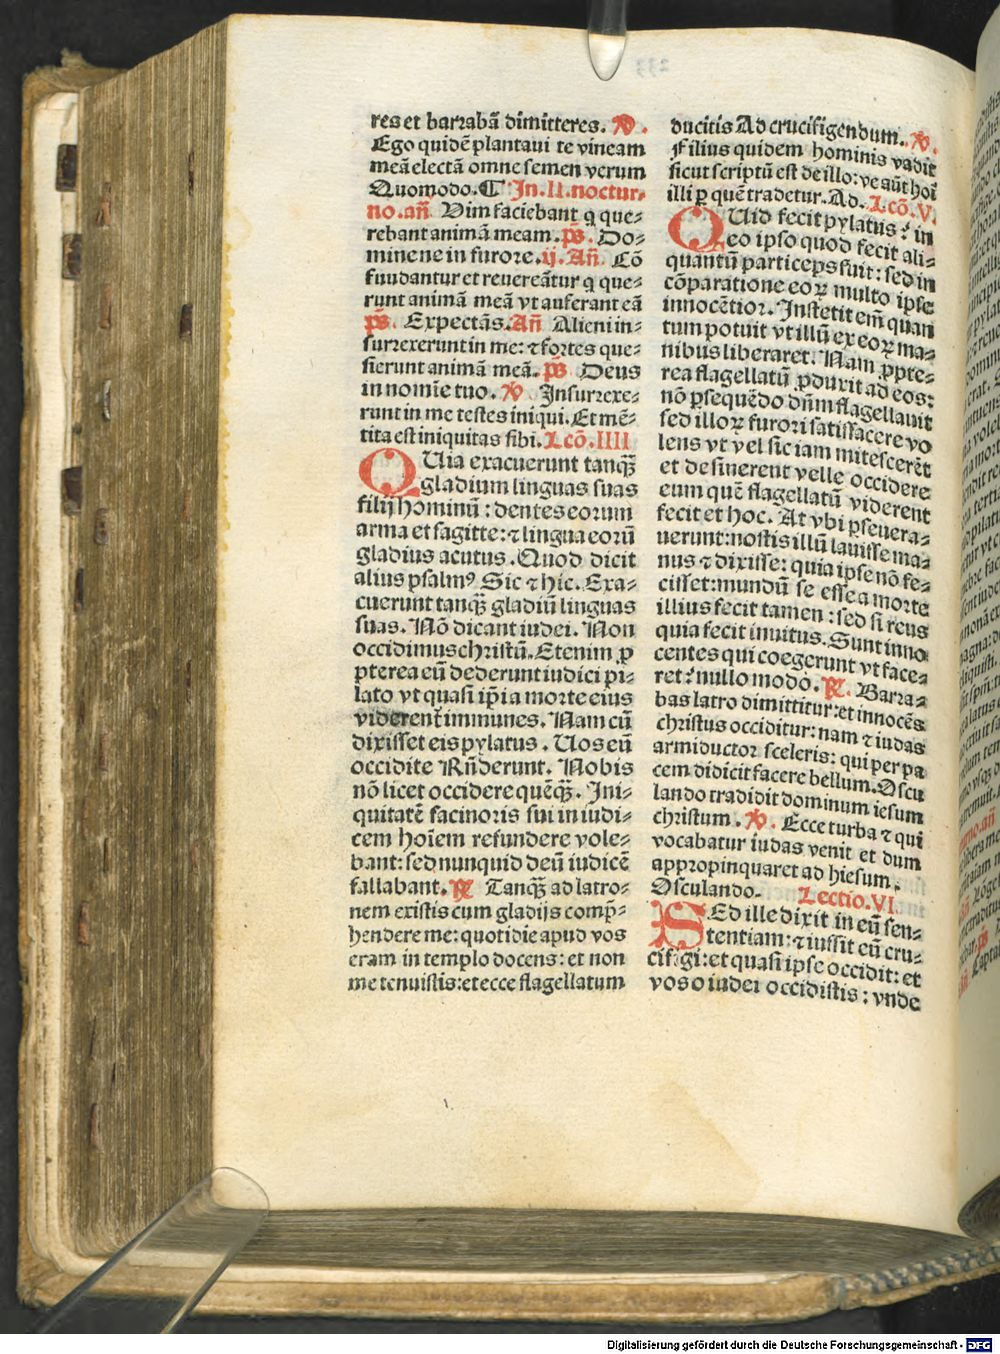 res et barrabā dimitteres. ℣.
Ego quidē plantaui te vineam
meā electā omne semen verum
Quomodo. ¶ In. II. noctur-
no. añ Vim faciebant q que-
rebant animā meam. p̄s. Do-
mine ne in furore. ij. Añ. Cō
fundantur et reuereātur q que-
runt animā meā vt auferant eā
p̄s. Expectās. Añ Alieni in-
surrexerunt in me: ⁊ fortes que-
sierunt animā meā. p̄s Deus
in nomīe tuo. ℣ Insurrexe-
runt in me testes iniq̄ui. Et mē-
tita est iniquitas sibi. Lcō. IIII
QUia exacuerunt tanq̄ȝ
gladium linguas suas
filij hominū: dentes eorum
arma et sagitte: ⁊ lingua eorū
gladius acutus. Quod dicit
alius psalmꝰ Sic ⁊ hic. Exa-
cuerunt tanq̄ȝ gladiū linguas
suas. Nō dicant iudei. Non
occidimus christū. Etenim ꝓ
pterea eū dederunt iudici pi-
lato vt quasi ip̄i a morte eius
viderent̄ immunes. Nam cū
dixisset eis pylatus. Uos eū
occidite Rn̄derunt. Nobis
nō licet occidere quēq̄ȝ. Ini-
quitatē facinoris sui in iudi-
cem hoīem refundere vole-
bant: sed nunquid deū iudicē
fallabant. ℟ Tanq̄ȝ ad latro-
nem existis cum gladijs comp̄-
hendere me: quotidie apud vos
eram in templo docens: et non
me tenuistis: et ecce flagellatum
ducitis Ad crucifigendum. ℣.
Filius quidem hominis vadit
sicut scriptū est de illo: ve aūt hoī
illi ꝑ quē tradetur. Ad. Lcō. V.
QUid fecit pylatus? in
eo ipso quod fecit ali-
quantū particeps fuit: sed in
cōparatione eoꝝ multo ipse
innocētior. Instetit em̄ quan
tum potuit vt illū ex eoꝝ ma-
nibus liberaret. Nam ꝓpte-
rea flagellatū ꝓduxit ad eos:
nō ꝑsequēdo dn̄m flagellauit
sed illoꝝ furori satisfacere vo
lens vt vel sic iam mitescerēt
et desinerent velle occidere
eum quē flagellatū viderent
fecit et hoc. At vbi ꝑseuera-
uerunt: nostis illū lauisse ma-
nus ⁊ dixisse: quia ipse nō fe-
cisset: mundū se esse a morte
illius fecit tamen: sed si reus
quia fecit inuitus. Sunt inno
centes qui coegerunt vt face-
ret? nullo modo. ℟. Barra-
bas latro dimittitur: et innocēs
christus occiditur: nam ⁊ iudas
armiductor sceleris: qui per pa
cem didicit facere bellum. Oscu
lando tradidit dominum iesum
christum. ℣. Ecce turba ⁊ qui
vocabatur iudas venit et dum
appropinquaret ad hiesum.
Osculando. Lectio. VI.
SEd ille dixit in eū sen-
tentiam: ⁊ iussit eū cru-
cifigi: et quasi ipse occidit: et
vos o iudei occidistis: vnde
Digitalisierung gefördert durch die Deutsche Forschungsgemeinschaft - DFG